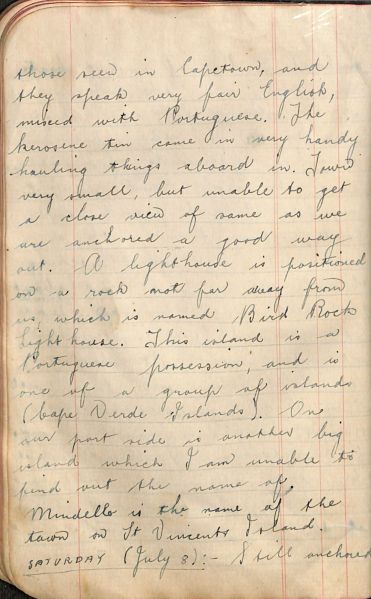 those seen in Capetown, and
they speak very fair English,
mixed with Portuguese. The
kerosene tin come in very handy
hauling things aboard in. Town
very small, but unable to get
a close view of same as we
are anchored a good way
out. A lighthouse is positioned
on a rock not far away from
us which is named Bird Rock
Lighthouse. This island is a
Portuguese possession, and is
one of a group of islands
(Cape Verde Islands). On
our port side is another big
island which I am unable to
find out the name of.
Mindello is the name of the
town on St Vincents Island.
SATURDAY (July 8):- Still anchored